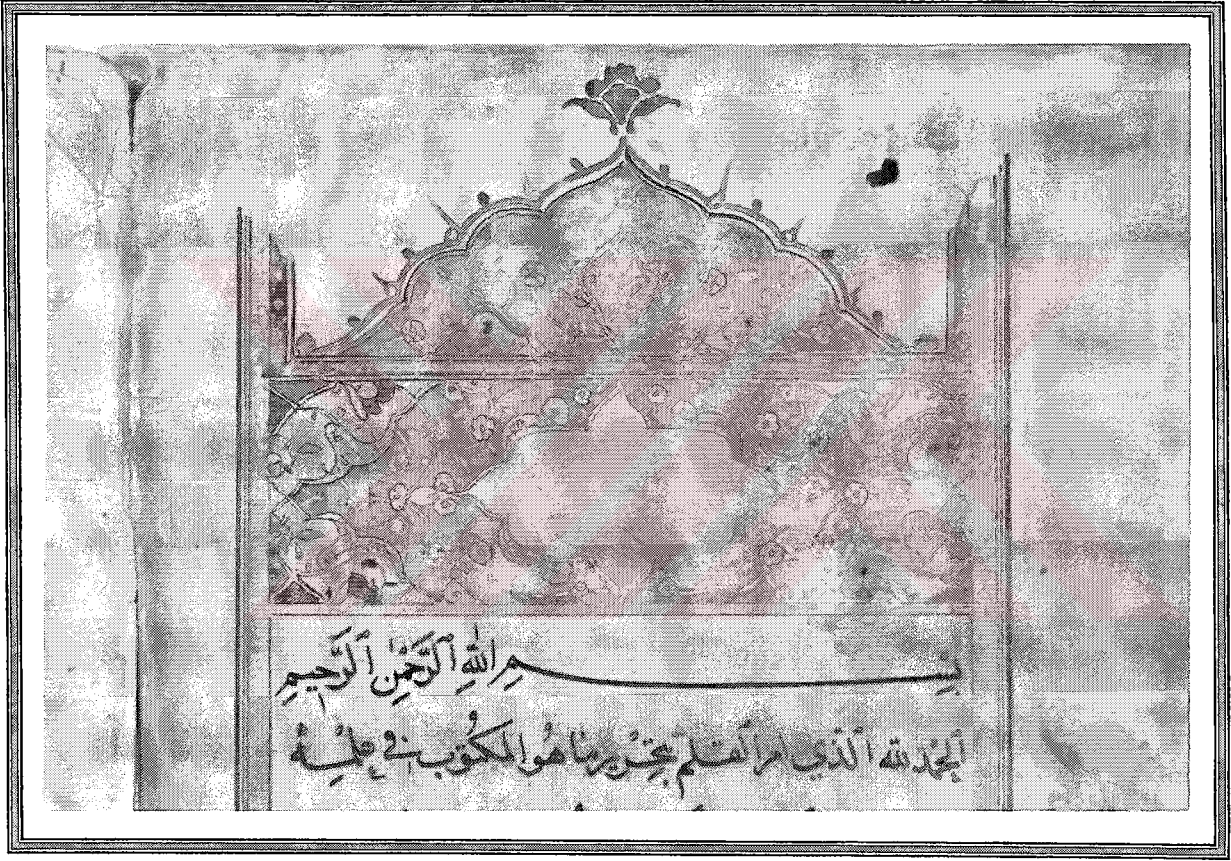 بِسْمِ اللهِ ٱلرَّحْمٰنِ ٱلرَّحِيمِ
ٱلحَمْدُ لله ٱلذي امر القلم بتحرير ما هو المكتوب في علمه